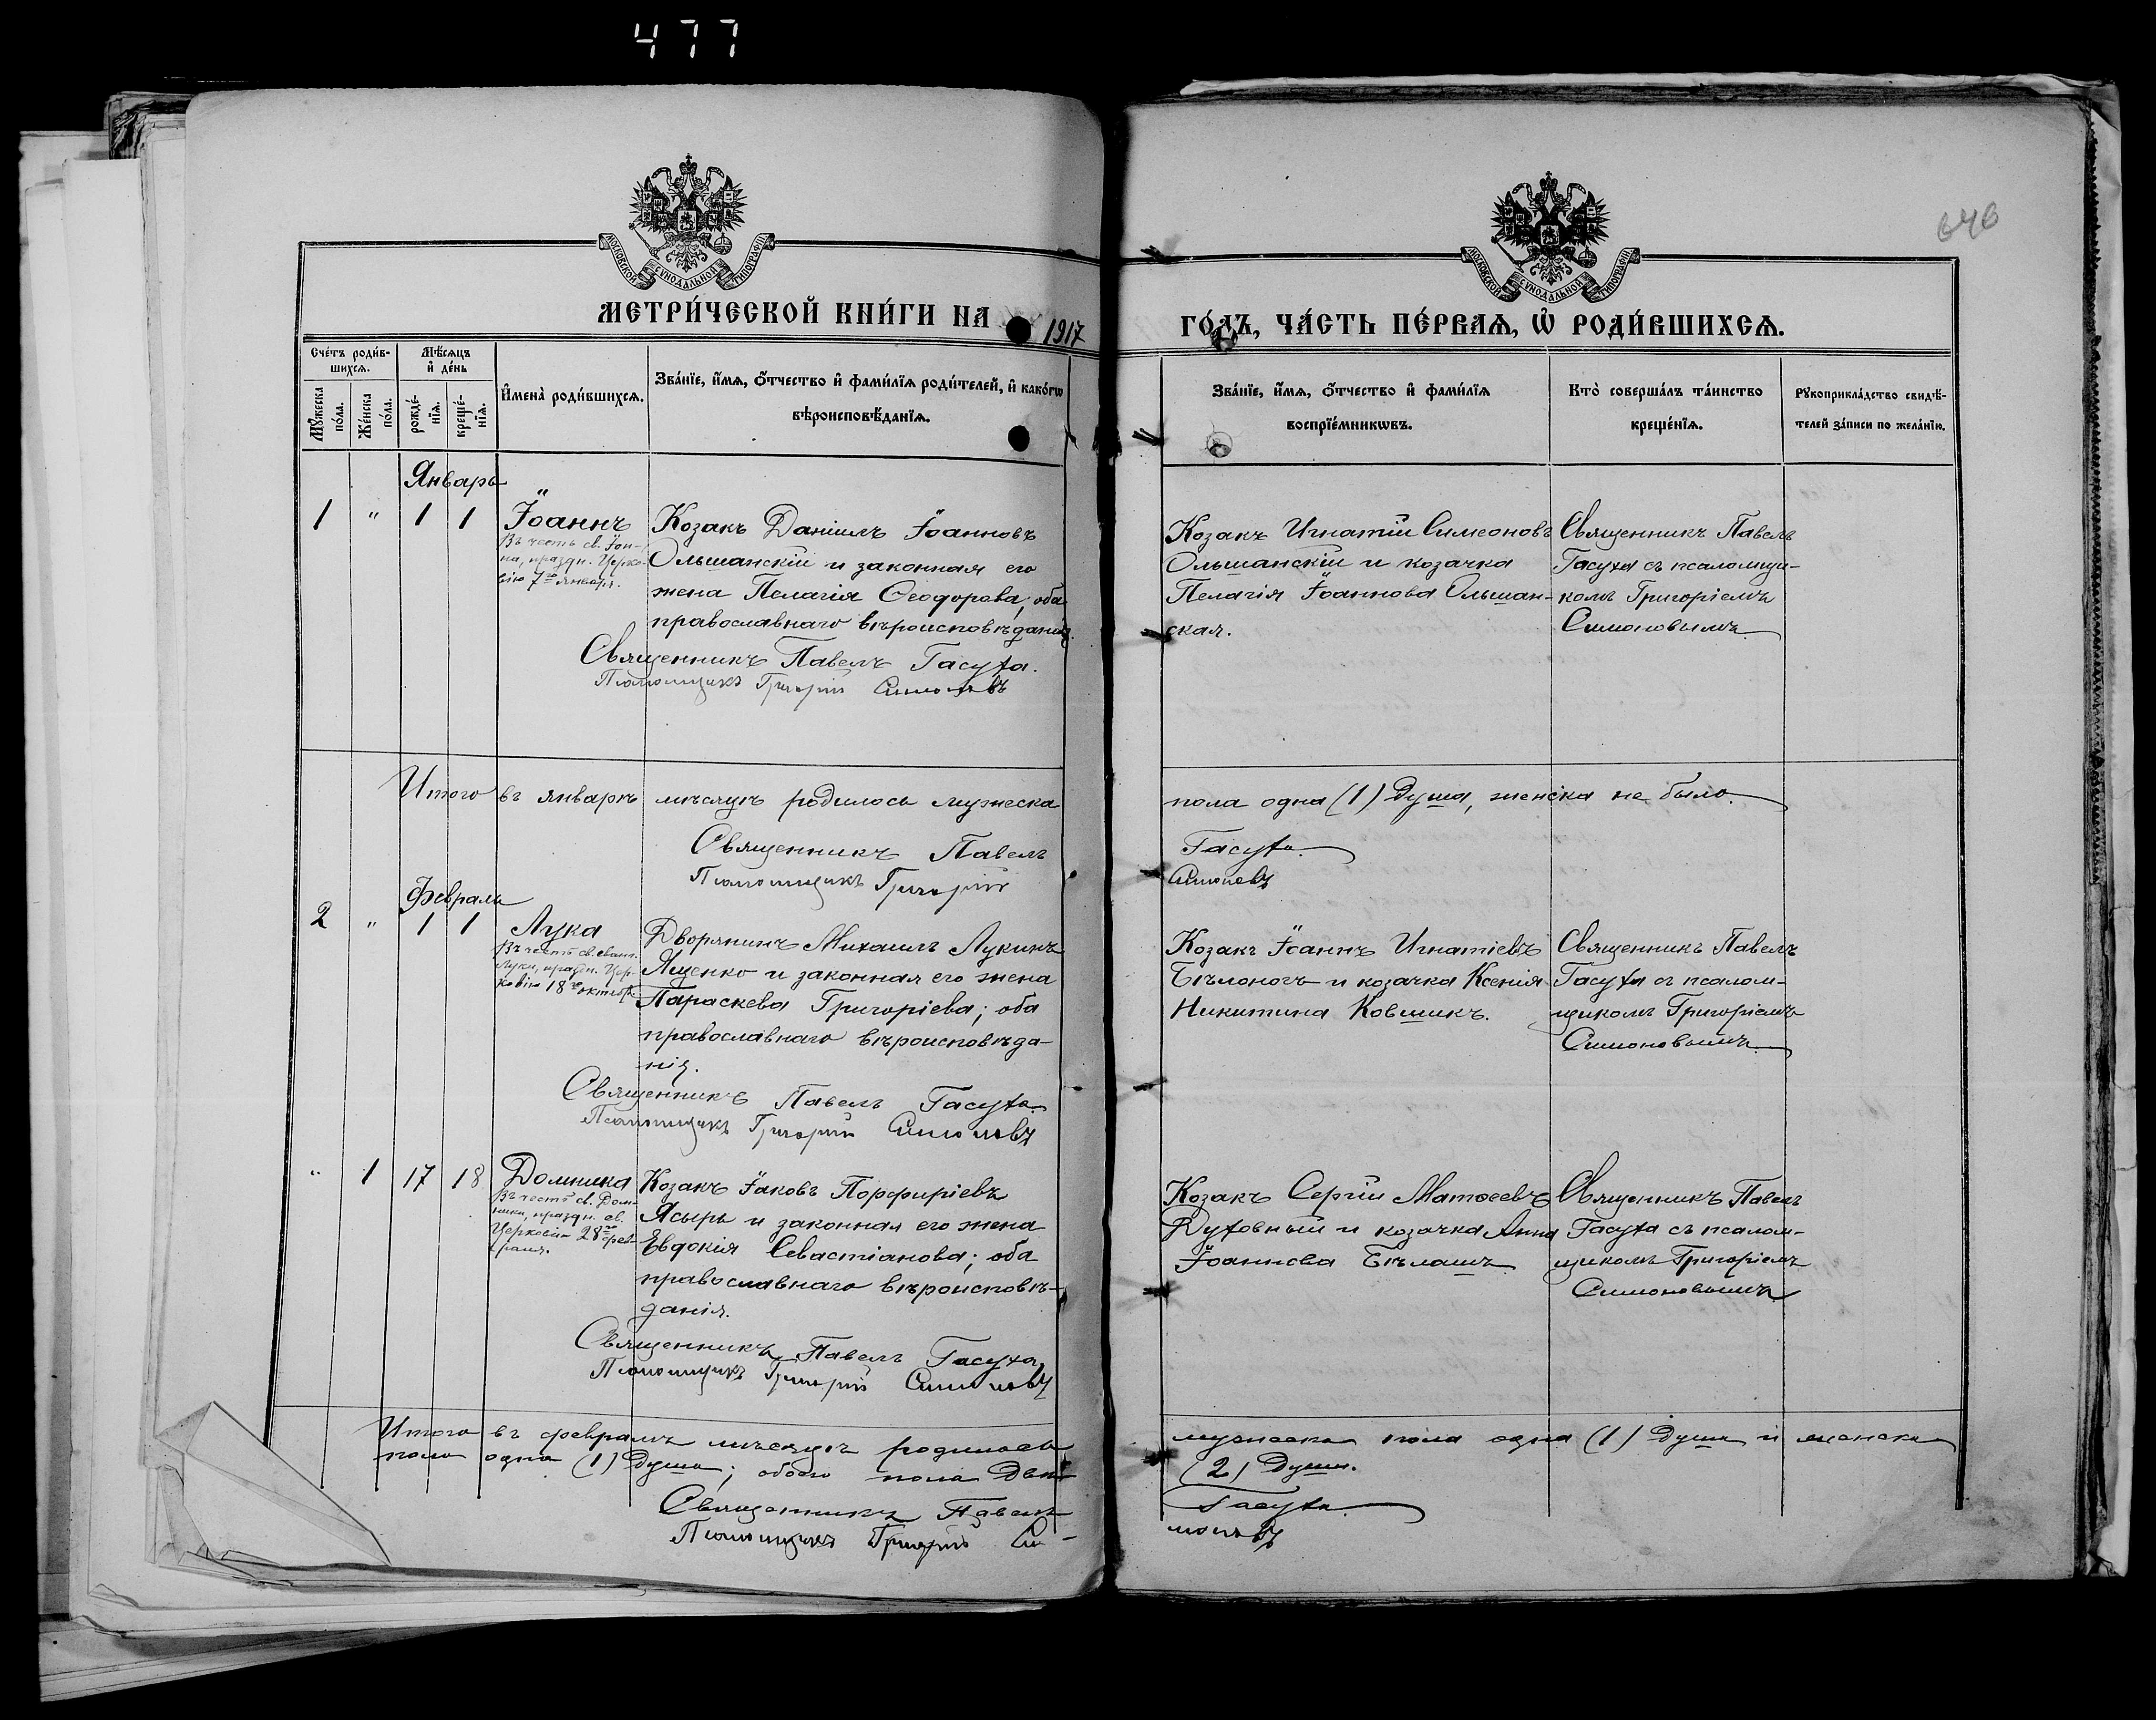 477
646
МОСКОВСКОЙ СѴНОДАЛЬНОЙ ТИПОГРАФІИ
МОСКОВСКОЙ СѴНОДАЛЬНОЙ ТИПОГРАФІИ
МЕТРИ́ЧЕСКОЙ КНИ́ГИ НА 1917
ГО́ДЪ, ЧА́СТЬ ПЕ́РВАѦ, Ѡ҆ РОДИ́ВШИХСѦ.
Сче́тъ роди́в-
шихсѧ.
Мѣ́сѧцъ
и҆ де́нь
Мꙋ́жеска
по́ла.
Же́нска
по́ла.
рожде́-
нїѧ.
креще́-
нїѧ.
И҆мена̀ роди́вшихсѧ.
Зва́нїе, и҆́мѧ, ѻ҆́тчество и҆ фами́лїѧ роди́телей, и҆ како́гѡ
вѣроисповѣ́данїѧ.
Зва́нїе, и҆́мѧ, ѻ҆́тчество и҆ фами́лїѧ
воспрїе́мникѡвъ.
Кто̀ соверша́лъ та́инство
креще́нїѧ.
Рꙋкоприкла́дство свидѣ́-
телей за́писи по жела́нїю.
Январь
1 " 1 1 Іоаннъ
Въ честь св. Іоан-
на, праздн. Церко-
вію 7го января.
Козакъ Даніилъ Іоанновъ
Ольшанскій и законная его
жена Пелагія Ѳеодорова; оба
православнаго вѣроисповѣданія.
Священникъ Павелъ Гасуха.
Псаломщикъ Григорій Симоновъ
Козакъ Игнатій Симеоновъ
Ольшанскій и козачка
Пелагія Іоаннова Ольшан-
ская.
Священникъ Павелъ
Гасуха съ псаломщи-
комъ Григоріемъ
Симоновымъ
Итого въ январѣ мѣсяцѣ родилось мужеска
пола одна (1) душа, женска не было.
Священникъ Павелъ
Гасуха.
Псаломщикъ Григорій
Симоновъ
Февраль
2 " 1 1 Лука
Въ честь св. еванг.
Луки, праздн. Цер-
ковію 18го октября
Дворянинъ Михаилъ Лукинъ
Ященко и законная его жена
Параскева Григоріева; оба
православнаго вѣроисповѣда-
нія.
Священникъ Павелъ Гасуха.
Псаломщикъ Григорій Симоновъ
Козакъ Іоаннъ Игнатіевъ
Бѣлоногъ и козачка Ксенія
Никитина Ковшикъ.
Священникъ Павелъ
Гасуха съ псалом-
щикомъ Григоріемъ
Симоновымъ
" 1 17 18 Домника
Въ честь св. Дом-
ники, праздн. св.
Церковію 28го фев-
раля.
Козакъ Іаковъ Порфиріевъ
Ясыръ и законная его жена
Евдокія Севастіанова; оба
православнаго вѣроисповѣ-
данія.
Священникъ Павелъ Гасуха
Псаломщикъ Григорій Симоновъ
Козакъ Сергій Матѳеевъ
Духовный и козачка Анна
Іоаннова Бѣлашъ
Священникъ Павелъ
Гасуха съ псалом-
щикомъ Григоріемъ
Симоновымъ
Итого въ февралѣ мѣсяцѣ родилось
мужеска пола одна (1) душа и женска
пола одна (1) душа; обоего пола двѣ
(2) души.
Священникъ Павелъ
Гасуха
Псаломщикъ Григорій Си-
моновъ